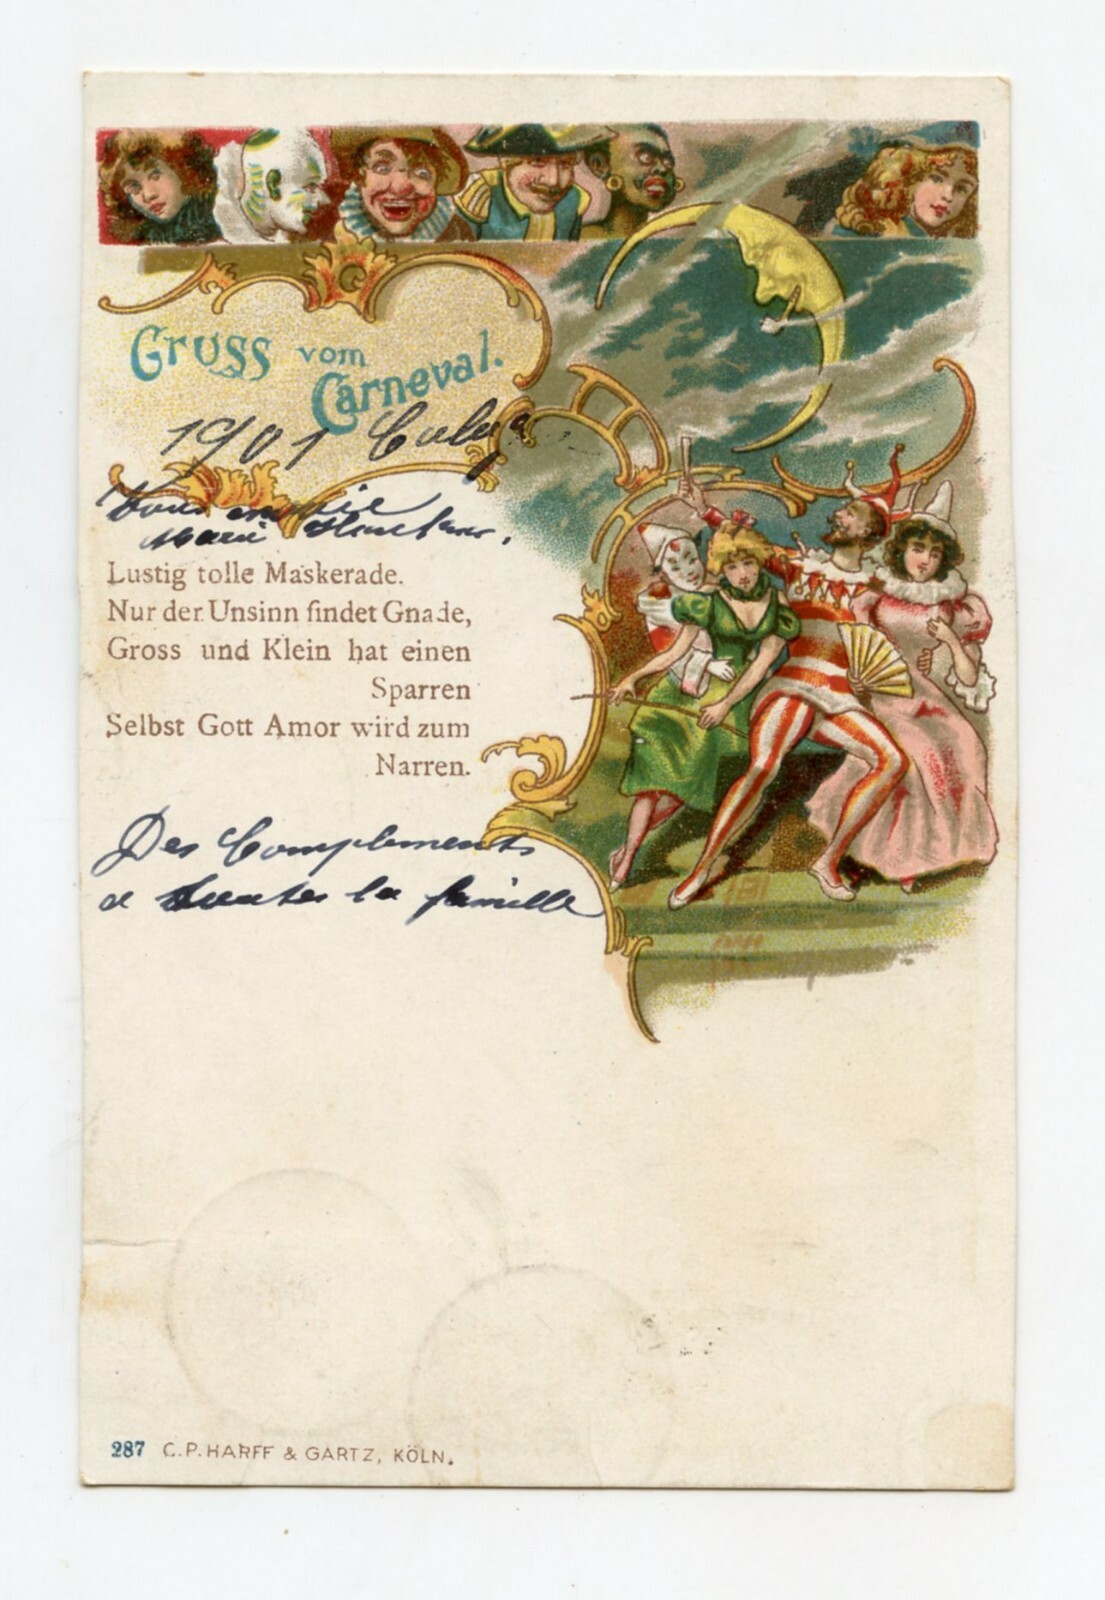 Gruss vom
Carneval.
1901
Lustig tolle Maskerade.
Nur der Unsinn findet Gnade,
Gross und Klein hat einen
Sparren
Selbst Gott Amor wird zum
Narren.
Des Complements
a toutes la famille
287 C.P. HARFF & GARTZ, KÖLN.